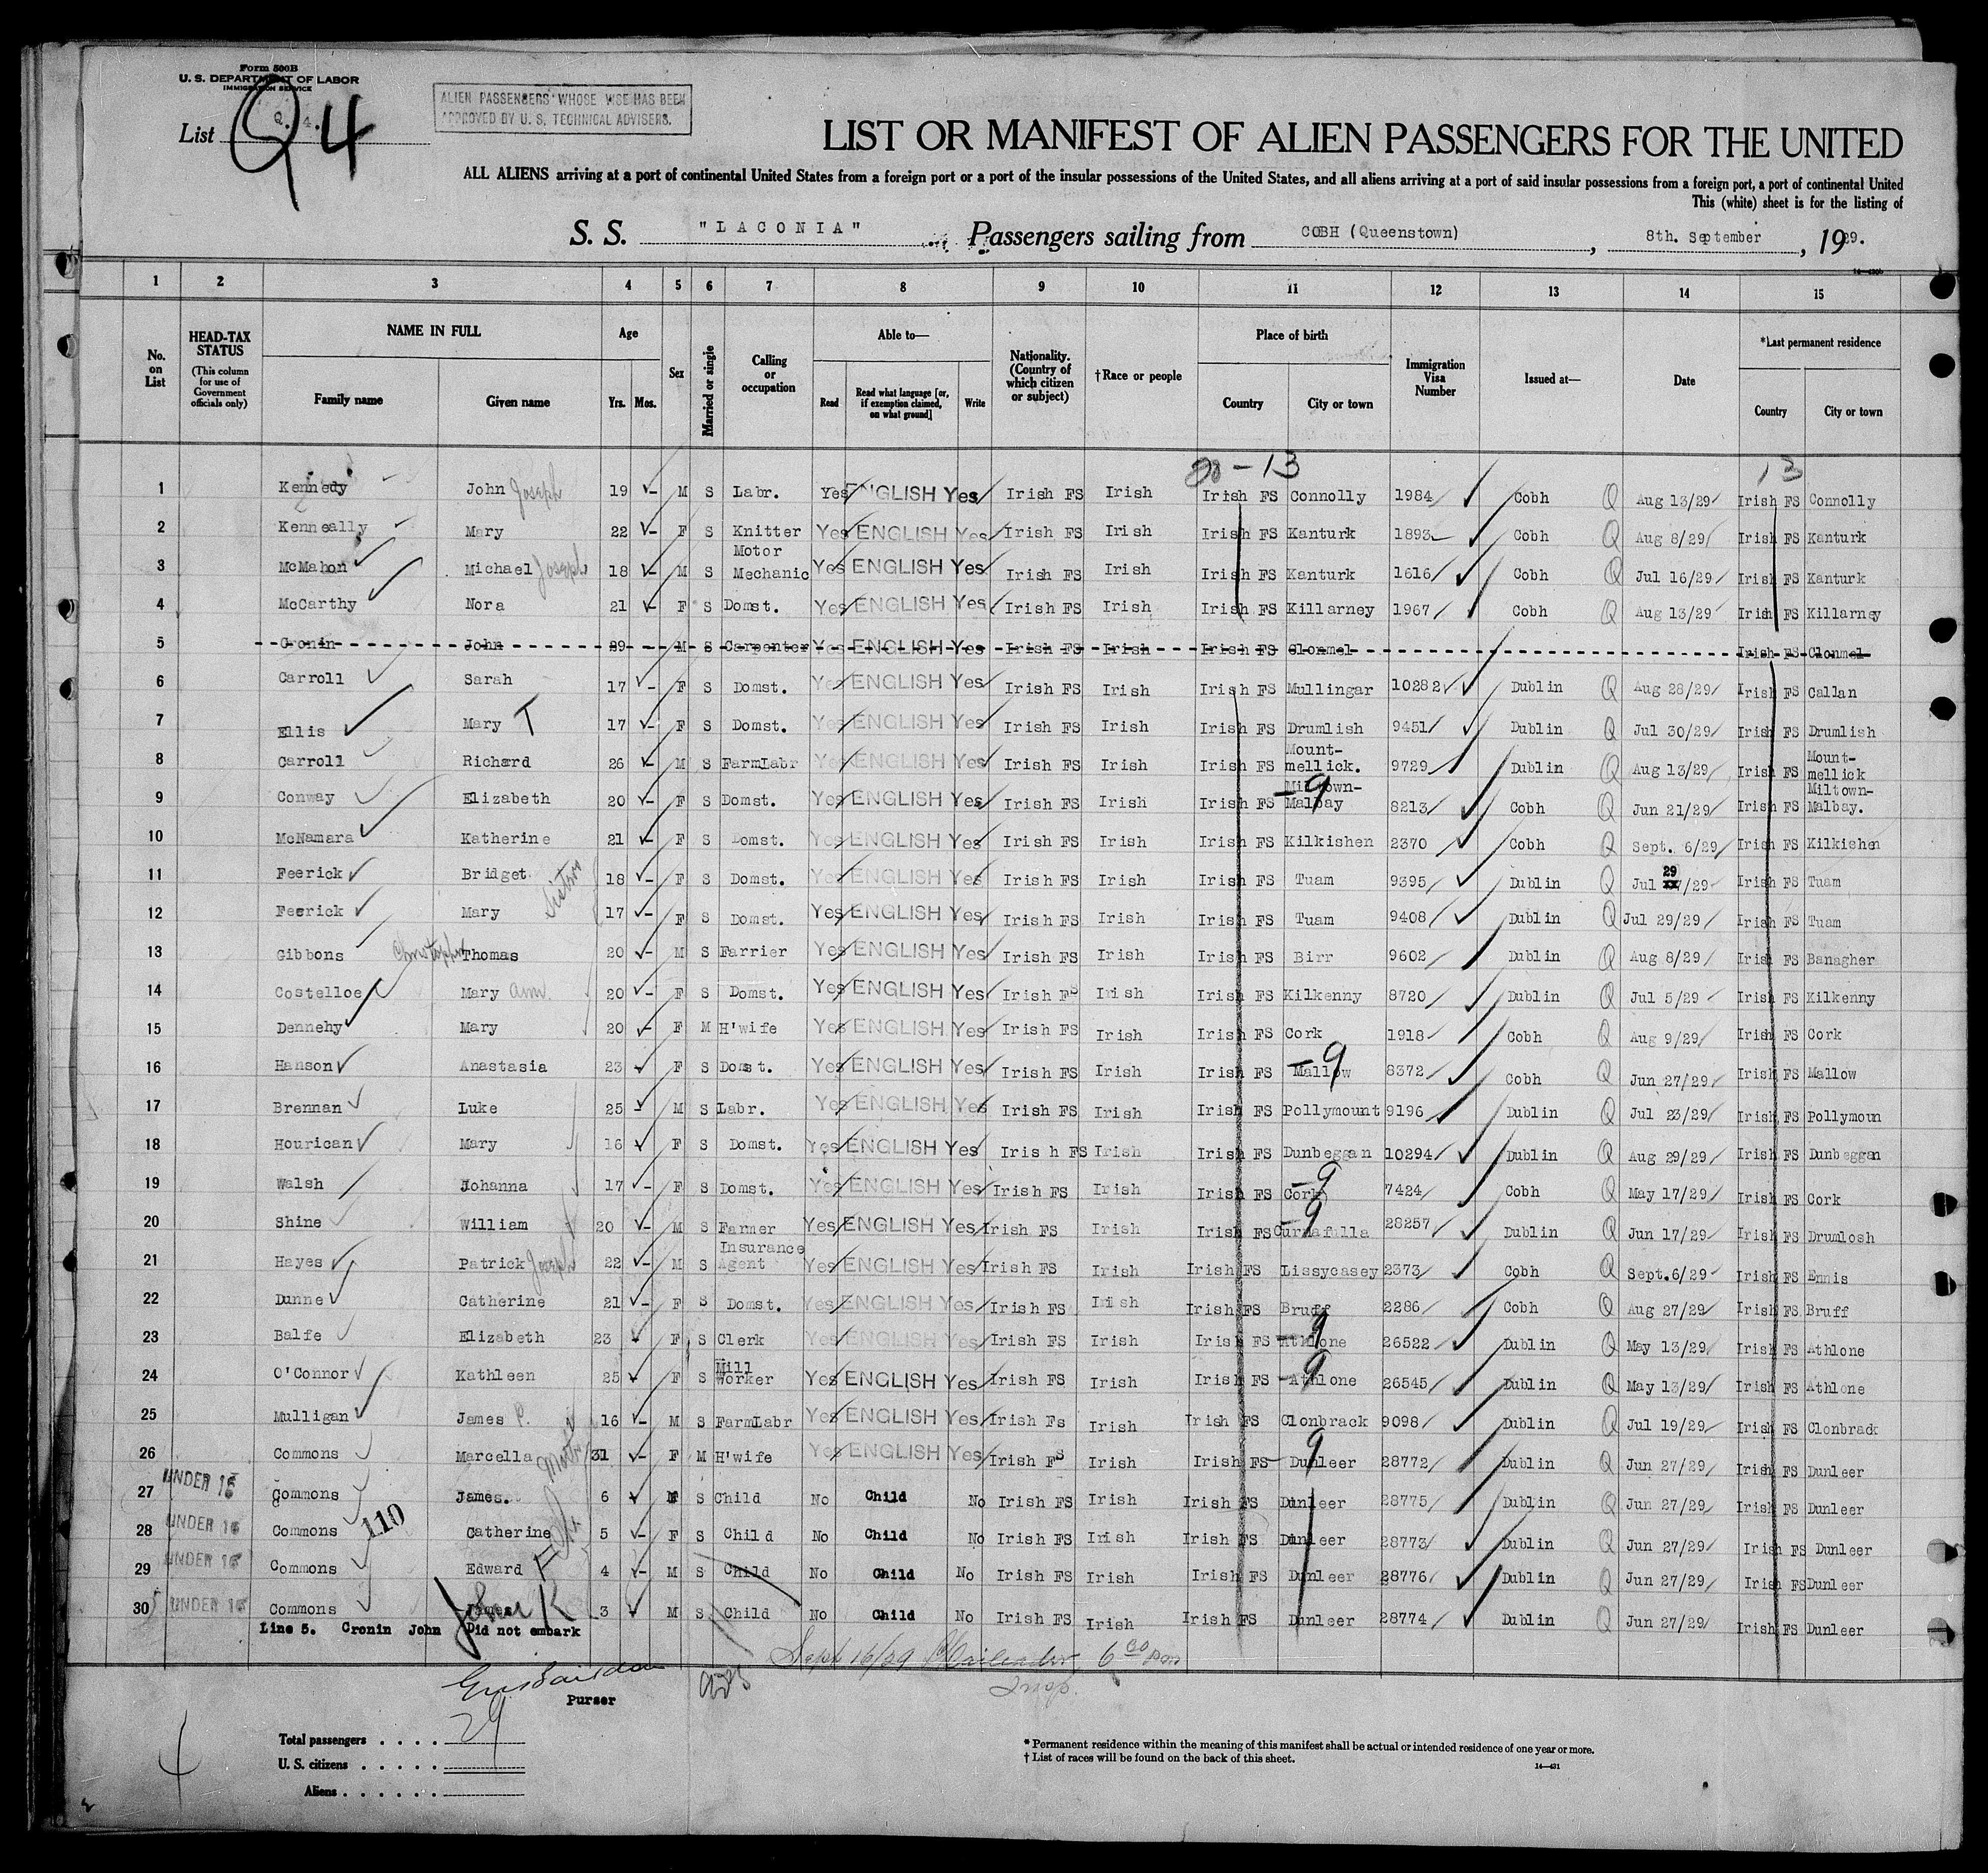 Form 500B
U. S. DEPARTMENT OF LABOR
IMMIGRATION SERVICE
List Q. 4.
Q4
ALIEN PASSENGERS WHOSE VISE HAS BEEN
APPROVED BY U. S. TECHNICAL ADVISERS.
LIST OR MANIFEST OF ALIEN PASSENGERS FOR THE UNITED
ALL ALIENS arriving at a port of continental United States from a foreign port or a port of the insular possessions of the United States, and all aliens arriving at a port of said insular possessions from a foreign port, a port of continental United
This (white) sheet is for the listing of
S. S. "LACONIA" Passengers sailing from COBH (Queenstown), 8th. September, 1929.
14-430b
1 2 3 4 5 6 7 8 9 10 11 12 13 14 15
No. on List
HEAD-TAX STATUS (This column for use of Government officials only)
NAME IN FULL Family name Given name
Age Yrs. Mos.
Sex
Married or single
Calling or occupation
Able to— Read Read what language [or, if exemption claimed, on what ground] Write
Nationality. (Country of which citizen or subject)
†Race or people
Place of birth Country City or town
Immigration Visa Number
Issued at—
Date
*Last permanent residence Country City or town
- 13 13
1 Kennedy John Joseph 19 M S Labr. Yes ENGLISH Yes Irish FS Irish Irish FS Connolly 1984 Cobh Q Aug 13/29 Irish FS Connolly
2 Kenneally Mary 22 F S Knitter Yes ENGLISH Yes Irish FS Irish Irish FS Kanturk 1893 Cobh Q Aug 8/29 Irish FS Kanturk
3 McMahon Michael Joseph 18 M S Motor Mechanic Yes ENGLISH Yes Irish FS Irish Irish FS Kanturk 1616 Cobh Q Jul 16/29 Irish FS Kanturk
4 McCarthy Nora 21 F S Domst. Yes ENGLISH Yes Irish FS Irish Irish FS Killarney 1967 Cobh Q Aug 13/29 Irish FS Killarney
5 Cronin John 29 M S Carpenter Yes ENGLISH Yes Irish FS Irish Irish FS Clonmel Irish FS Clonmel
6 Carroll Sarah 17 F S Domst. Yes ENGLISH Yes Irish FS Irish Irish FS Mullingar 10282 Dublin Q Aug 28/29 Irish FS Callan
7 Ellis Mary T 17 F S Domst. Yes ENGLISH Yes Irish FS Irish Irish FS Drumlish 9451 Dublin Q Jul 30/29 Irish FS Drumlish
8 Carroll Richard 26 M S FarmLabr Yes ENGLISH Yes Irish FS Irish Irish FS Mount-mellick. 9729 Dublin Q Aug 13/29 Irish FS Mount-mellick
9 Conway Elizabeth 20 F S Domst. Yes ENGLISH Yes Irish FS Irish Irish FS Miltown-Malbay -9 8213 Cobh Q Jun 21/29 Irish FS Miltown-Malbay.
10 McNamara Katherine 21 F S Domst. Yes ENGLISH Yes Irish FS Irish Irish FS Kilkishen 2370 Cobh Q Sept. 6/29 Irish FS Kilkishen
11 Feerick Bridget Sisters 18 F S Domst. Yes ENGLISH Yes Irish FS Irish Irish FS Tuam 9395 Dublin Q Jul 29/29 Irish FS Tuam
12 Feerick Mary 17 F S Domst. Yes ENGLISH Yes Irish FS Irish Irish FS Tuam 9408 Dublin Q Jul 29/29 Irish FS Tuam
13 Gibbons Christopher Thomas 20 M S Farrier Yes ENGLISH Yes Irish FS Irish Irish FS Birr 9602 Dublin Q Aug 8/29 Irish FS Banagher
14 Costelloe Mary Ann 20 F S Domst. Yes ENGLISH Yes Irish FS Irish Irish FS Kilkenny 8720 Dublin Q Jul 5/29 Irish FS Kilkenny
15 Dennehy Mary 20 F M H'wife Yes ENGLISH Yes Irish FS Irish Irish FS Cork 1918 Cobh Q Aug 9/29 Irish FS Cork
16 Hanson Anastasia 23 F S Domst. Yes ENGLISH Yes Irish FS Irish Irish FS Mallow -9 8372 Cobh Q Jun 27/29 Irish FS Mallow
17 Brennan Luke 25 M S Labr. Yes ENGLISH Yes Irish FS Irish Irish FS Pollymount 9196 Dublin Q Jul 23/29 Irish FS Pollymoun
18 Hourican Mary 16 F S Domst. Yes ENGLISH Yes Irish FS Irish Irish FS Dunbeggan 10294 Dublin Q Aug 29/29 Irish FS Dunbeggan
19 Walsh Johanna 17 F S Domst. Yes ENGLISH Yes Irish FS Irish Irish FS Cork -9 7424 Cobh Q May 17/29 Irish FS Cork
20 Shine William 20 M S Farmer Yes ENGLISH Yes Irish FS Irish Irish FS Curnafulla -9 28257 Dublin Q Jun 17/29 Irish FS Drumlosh
21 Hayes Patrick Joseph 22 M S Insurance Agent Yes ENGLISH Yes Irish FS Irish Irish FS Lissycasey 2373 Cobh Q Sept.6/29 Irish FS Ennis
22 Dunne Catherine 21 F S Domst. Yes ENGLISH Yes Irish FS Irish Irish FS Bruff 2286 Cobh Q Aug 27/29 Irish FS Bruff
23 Balfe Elizabeth 23 F S Clerk Yes ENGLISH Yes Irish FS Irish Irish FS Athlone -9 26522 Dublin Q May 13/29 Irish FS Athlone
24 O'Connor Kathleen 25 F S Mill Worker Yes ENGLISH Yes Irish FS Irish Irish FS Athlone -9 26545 Dublin Q May 13/29 Irish FS Athlone
25 Mulligan James P. 16 M S FarmLabr Yes ENGLISH Yes Irish Fs Irish Irish FS Clonbrack 9098 Dublin Q Jul 19/29 Irish FS Clonbrack
26 Commons Marcella 31 F M H'wife Yes ENGLISH Yes Irish FS Irish Irish FS Dunleer 9 28772 Dublin Q Jun 27/29 Irish FS Dunleer
27 UNDER 16 Commons James. 6 M S Child No Child No Irish FS Irish Irish FS Dunleer 28775 Dublin Q Jun 27/29 Irish FS Dunleer
28 UNDER 16 Commons 110 Catherine 5 F S Child No Child No Irish FS Irish Irish FS Dunleer 28773 Dublin Q Jun 27/29 Irish FS Dunleer
29 UNDER 16 Commons Edward F 4 M S Child No Child No Irish FS Irish Irish FS Dunleer 28776 Dublin Q Jun 27/29 Irish FS Dunleer
30 UNDER 16 Commons John K 3 M S Child No Child No Irish FS Irish Irish FS Dunleer 28774 Dublin Q Jun 27/29 Irish FS Dunleer
Line 5. Cronin John Did not embark
Sept 16/29 6 00 pm
Insp.
Purser
Total passengers . . . . 29
U. S. citizens . . . . .
Aliens . . . . . .
* Permanent residence within the meaning of this manifest shall be actual or intended residence of one year or more.
† List of races will be found on the back of this sheet.
14-431